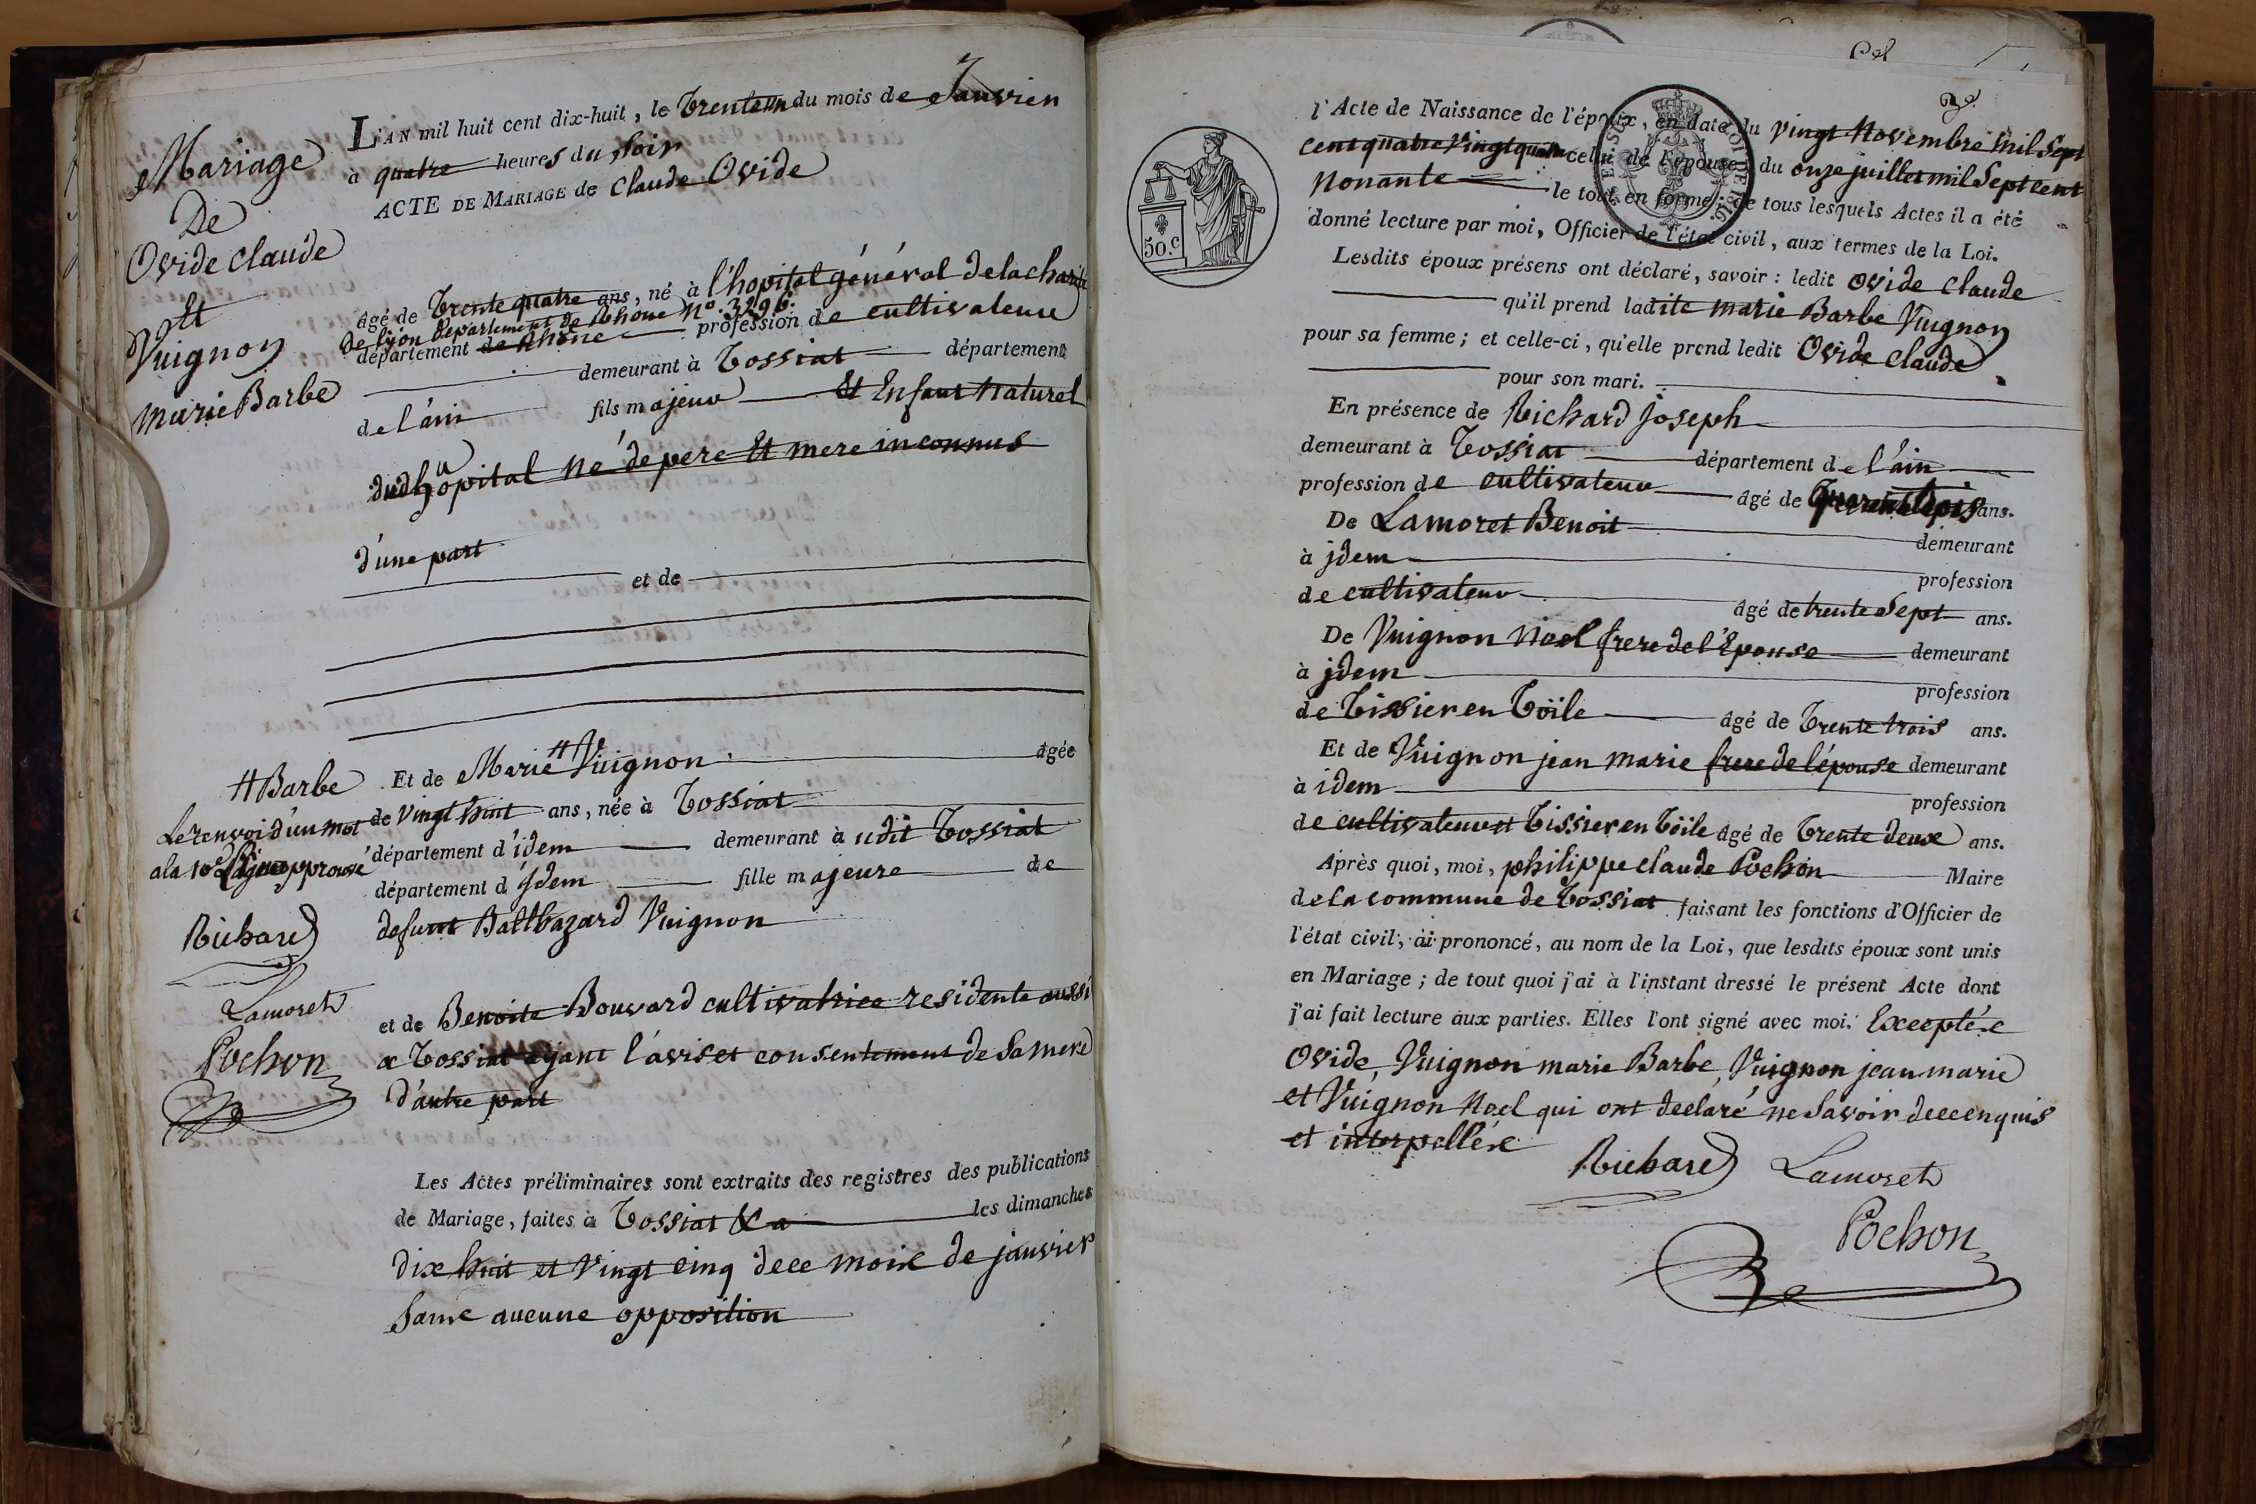 Mariage
De
Ovide claude
Et
Vuignon
marie Barbe
L'AN mil huit cent dix-huit, le Trente un du mois de Janvier
à quatre heures du soir
ACTE DE MARIAGE de Claude Ovide
âgé de Trente quatre ans, né à l'hopital général de la charité
de lyon departement de Rhône N° 3296.
département de Rhône profession de cultivateur
demeurant à Tossiat département
de l'ain fils majeur Et Enfant Naturel
dud hopital Né de pere Et mere inconnus
d'une part
et de
Et de Marie # Vuignon agée
# Barbe
de vingt huit ans, née à Tossiat
département d'idem demeurant à udit Tossiat
département d'jdem fille majeure de
defunt Balthazard Vuignon
Le renvoi d'un mot
a la 10e Ligne approuvé
Richard
Lamoret
Pochon
et de Benoite Bouvard cultivatrice residente aussi
a Tossiat ayant l'avis et consentement de Sa mere
d'autre part
Les Actes préliminaires sont extraits des registres des publications
de Mariage, faites à Tossiat &a les dimanches
dix huit et vingt cinq dece mois de janvier
Sans aucune opposition
50.C
LOI DE 1816
l'Acte de Naissance de l'époux, en date du vingt Novembre mil Sept
cent quatre vingt quatre celui de l'épouse, du onze juillet mil Sept cent
Nonante le tout en forme; de tous lesquels Actes il a été
donné lecture par moi, Officier de l'état civil, aux termes de la Loi.
Lesdits époux présens ont déclaré, savoir: ledit Ovide Claude
qu'il prend ladite marie Barbe Vuignon
pour sa femme; et celle-ci, qu'elle prend ledit Ovide Claude
pour son mari.
En présence de Richard joseph
demeurant à Tossiat département de l'ain
profession de cultivateur âgé de quarente trois ans.
De Lamoret Benoit demeurant
à jdem profession
de cultivateur âgé de trente Sept ans.
De Vuignon Noel frere de l'Epouse demeurant
à jdem profession
de Tissier en Toile âgé de Trente trois ans.
Et de Vuignon jean marie frere de l'épouse demeurant
à idem profession
de cultivateur et Tissier en Toile âgé de Trente deux ans.
Après quoi, moi, philippe claude Pochon Maire
de la commune de Tossiat faisant les fonctions d'Officier de
l'état civil, ai prononcé, au nom de la Loi, que lesdits époux sont unis
en Mariage; de tout quoi j'ai à l'instant dressé le présent Acte dont
j'ai fait lecture aux parties. Elles l'ont signé avec moi. Exceptés
Ovide, Vuignon marie Barbe, Vuignon jean marie
et Vuignon Noel qui ont declaré ne Savoir dece enquis
et interpellés
Richard Lamoret
Pochon